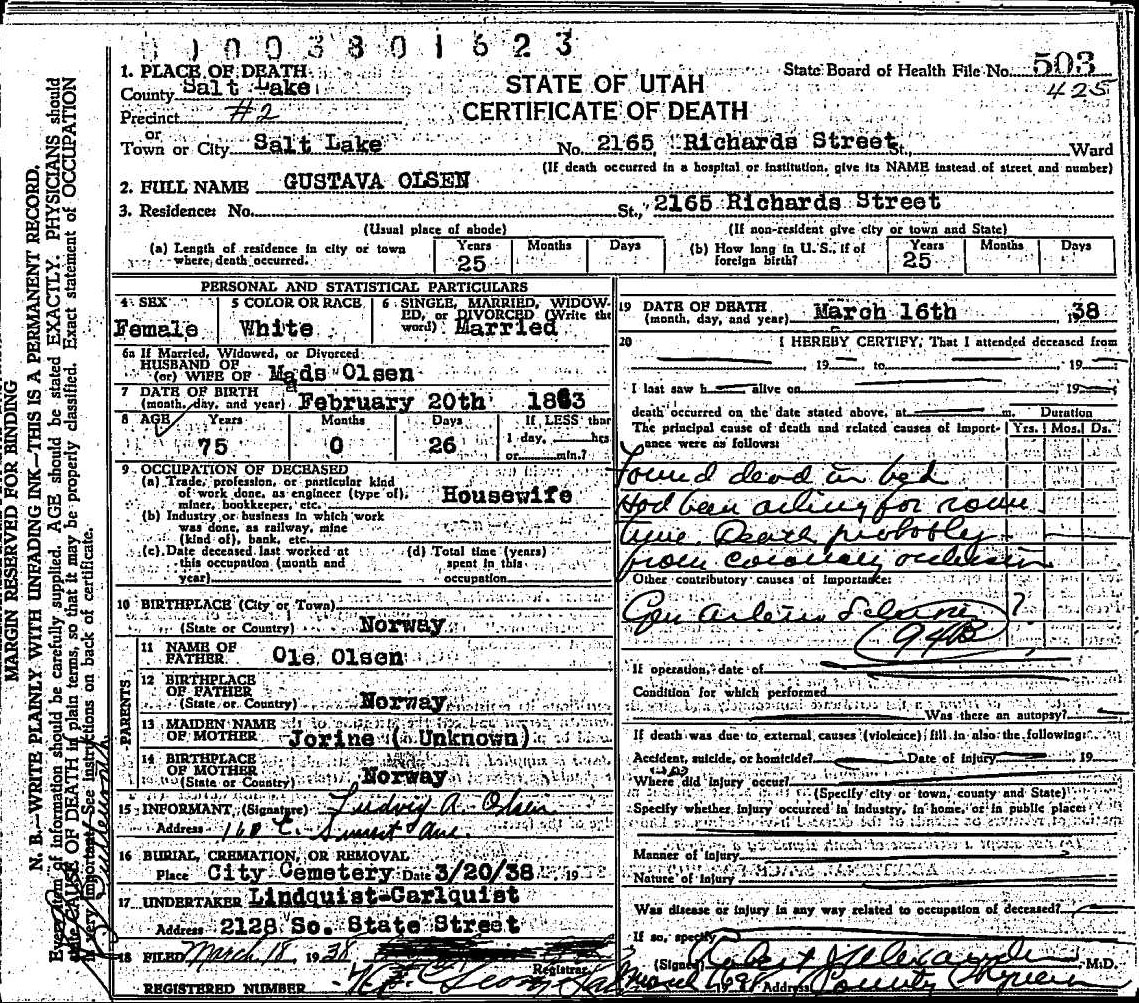 1003801623
STATE OF UTAH
CERTIFICATE OF DEATH
State Board of Health File No. 503
425
1. PLACE OF DEATH
County Salt Lake
Precinct #2
or
Town or City Salt Lake No. 2165 Richards Street St., Ward
(If death occurred in a hospital or institution, give its NAME instead of street and number)
2. FULL NAME GUSTAVA OLSEN
3. Residence: No. St., 2165 Richards Street
(Usual place of abode) (If non-resident give city or town and State)
(a) Length of residence in city or town where death occurred. Years 25 Months Days
(b) How long in U. S., if of foreign birth? Years 25 Months Days
PERSONAL AND STATISTICAL PARTICULARS
4 SEX Female
5 COLOR OR RACE White
6 SINGLE, MARRIED, WIDOWED, or DIVORCED (Write the word) Married
6a If Married, Widowed, or Divorced
HUSBAND OF
(or) WIFE OF Mads Olsen
7 DATE OF BIRTH
(month, day, and year) February 20th 1863
8 AGE Years 75 Months 0 Days 26 If LESS than 1 day, hrs. or min.?
9 OCCUPATION OF DECEASED
(a) Trade, profession, or particular kind
of work done, as engineer (type of),
miner, bookkeeper, etc. Housewife
(b) Industry or business in which work
was done, as railway, mine
(kind of), bank, etc.
(c) Date deceased last worked at
this occupation (month and
year)
(d) Total time (years)
spent in this
occupation
10 BIRTHPLACE (City or Town)
(State or Country) Norway
PARENTS
11 NAME OF
FATHER Ole Olsen
12 BIRTHPLACE
OF FATHER
(State or Country) Norway
13 MAIDEN NAME
OF MOTHER Jorine (Unknown)
14 BIRTHPLACE
OF MOTHER
(State or Country) Norway
15 INFORMANT (Signature) Ludvig A. Olsen
Address 168 E. Sunset Ave.
16 BURIAL, CREMATION, OR REMOVAL
Place City Cemetery Date 3/20/38 19
17 UNDERTAKER Lindquist-Carlquist
Address 2128 So. State Street
18 FILED March 18, 1938
Registrar.
REGISTERED NUMBER
19 DATE OF DEATH
(month, day, and year) March 16th 1938
20 I HEREBY CERTIFY, That I attended deceased from
19 to 19
I last saw h alive on 19
death occurred on the date stated above, at m. Duration
The principal cause of death and related causes of importance were as follows: Yrs. Mos. Ds.
Found dead in bed
Had been ailing for some
time. Death probably
from coronary occlusion
Other contributory causes of importance:
Gen Arterio Sclerosis ?
94B
If operation, date of
Condition for which performed
Was there an autopsy?
If death was due to external causes (violence) fill in also the following:
Accident, suicide, or homicide? Date of injury 19
Where did injury occur?
(Specify city or town, county and State)
Specify whether injury occurred in industry, in home, or in public place:
Manner of injury
Nature of injury
Was disease or injury in any way related to occupation of deceased?
If so, specify
(Signed) Robert J Alexander M.D.
Address County
MARGIN RESERVED FOR BINDING
N. B.—WRITE PLAINLY WITH UNFADING INK—THIS IS A PERMANENT RECORD.
Every item of information should be carefully supplied. AGE should be stated EXACTLY. PHYSICIANS should
state CAUSE OF DEATH in plain terms, so that it may be properly classified. Exact statement of OCCUPATION
is very important. See instructions on back of certificate.